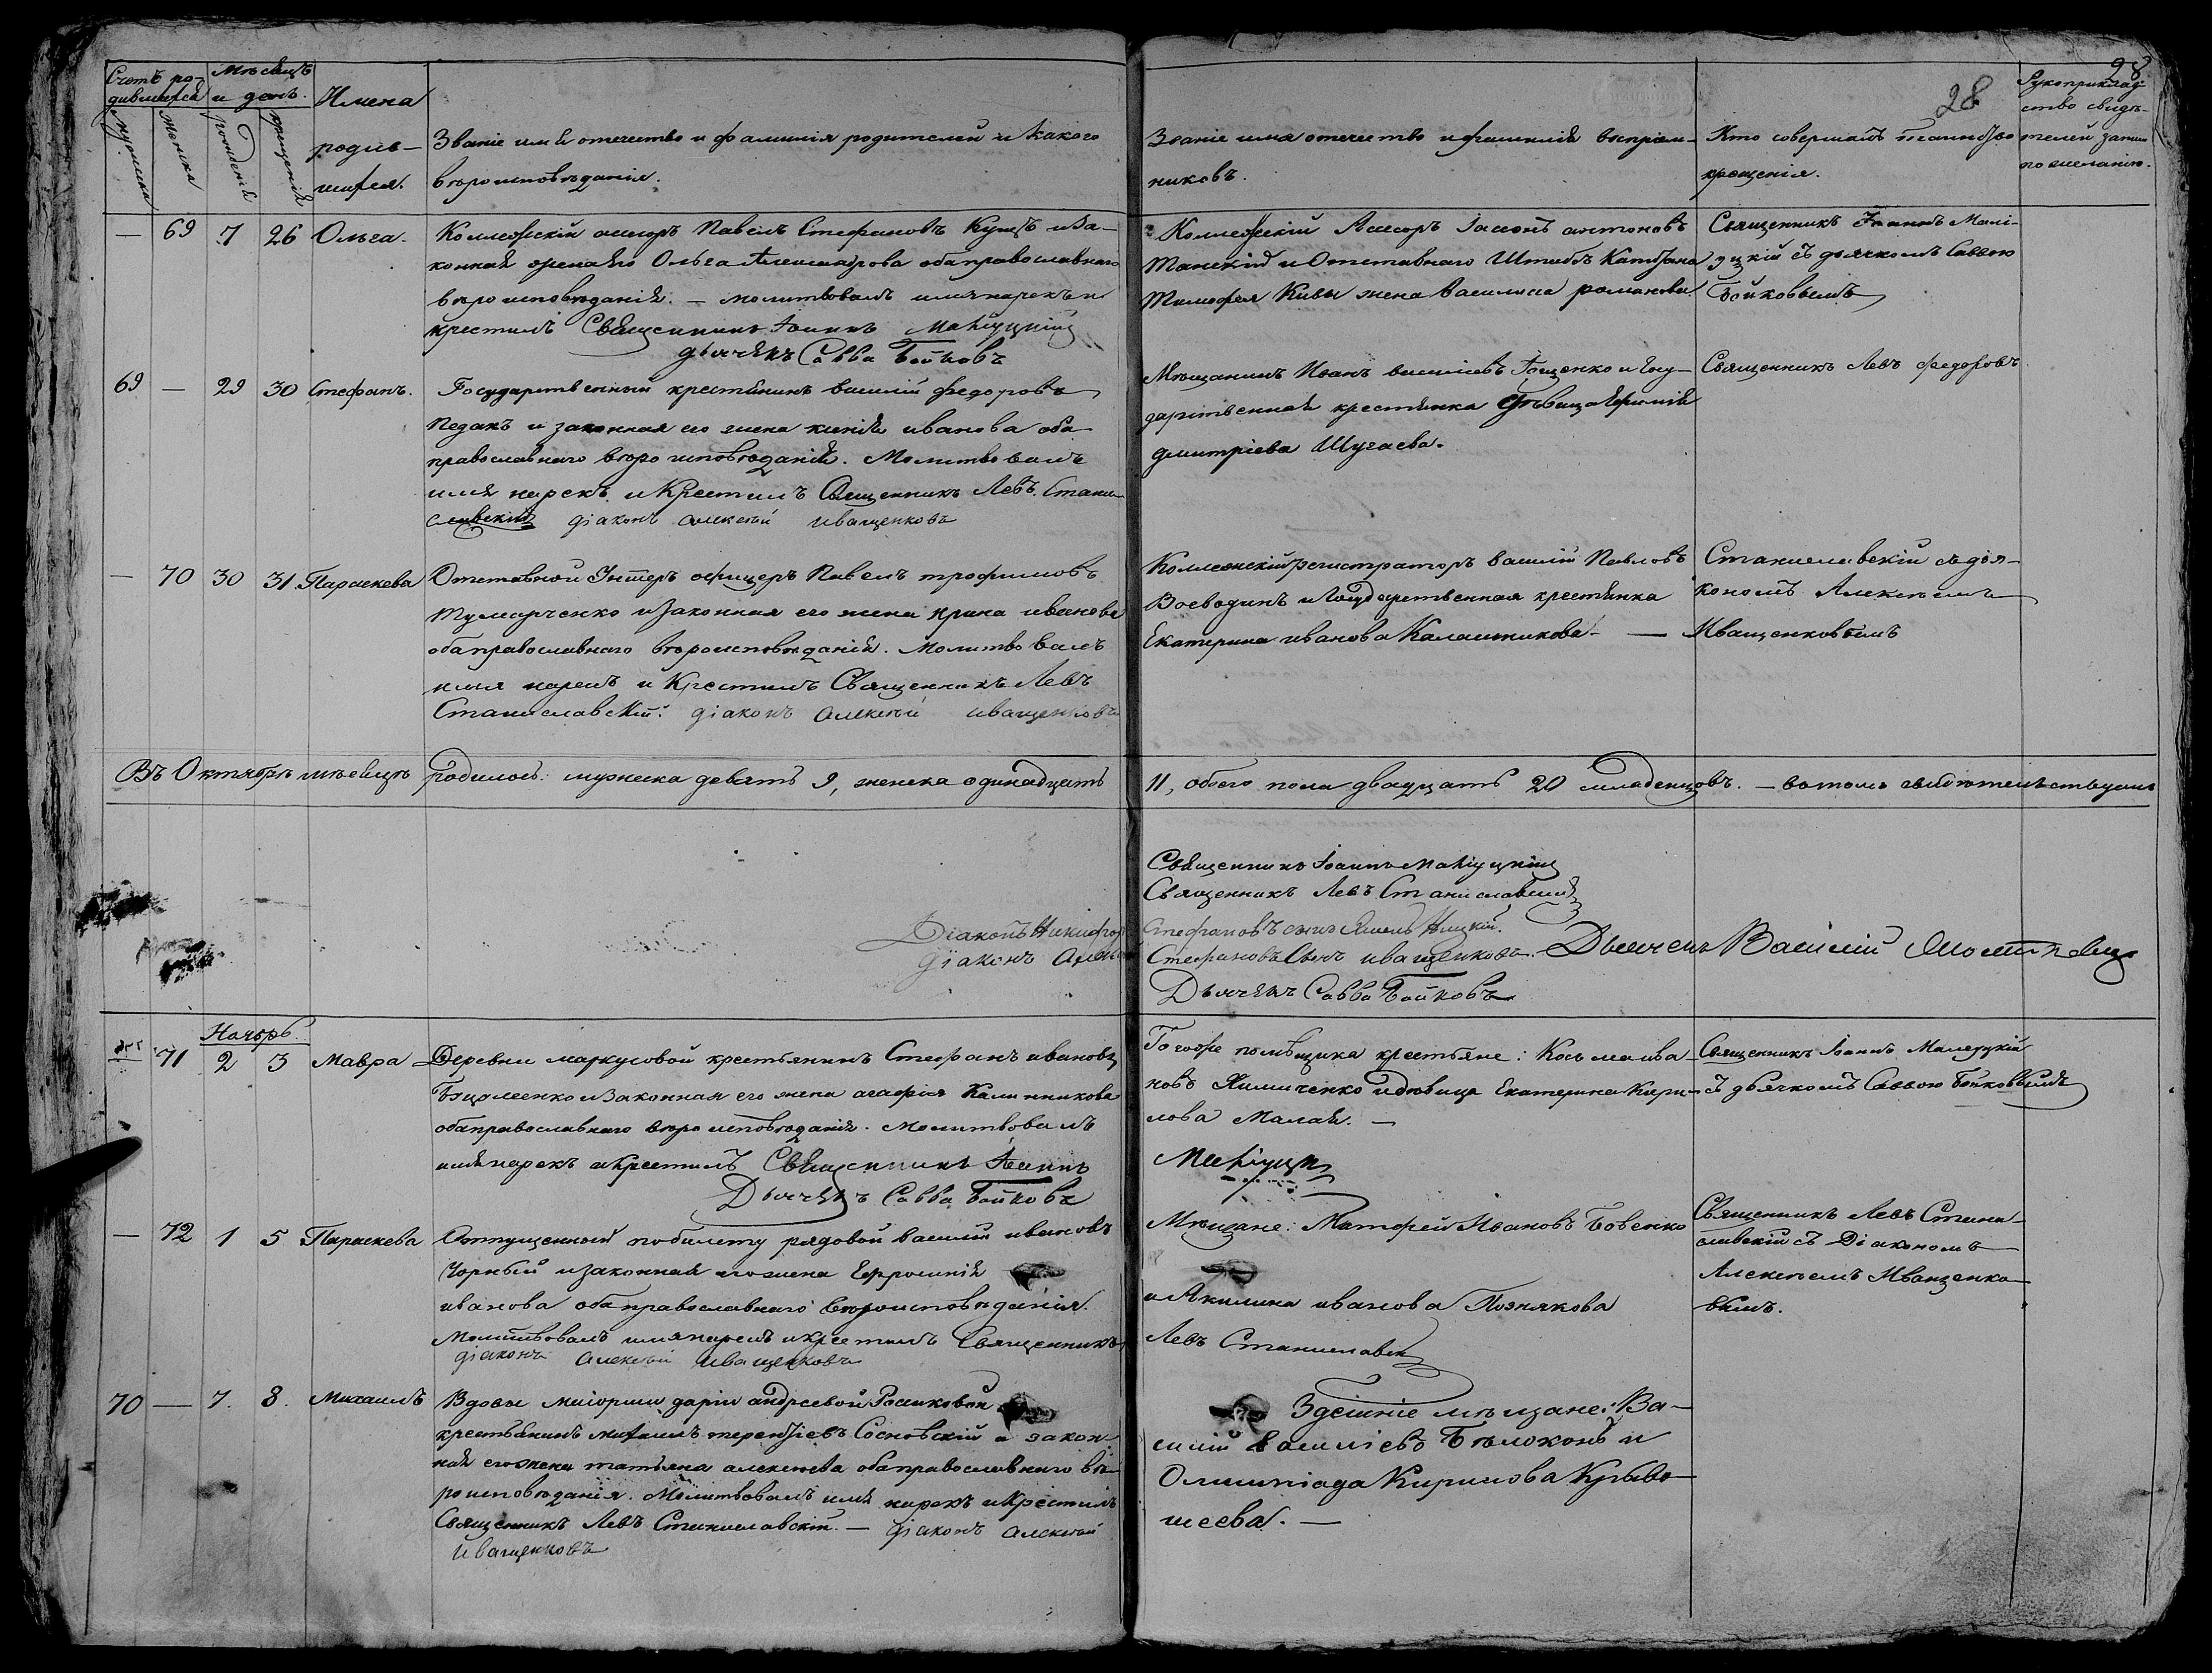 28
28
Счетъ ро-
дившихся
Мѣсяцъ
и день.
мужеска
женска
рожденія
крещенія
Имена
родив-
шихся.
Званіе имя отечество и фамилія родителей и какого
вѣроисповѣданія.
Званіе имя отечество и фамилія воспріем-
никовъ.
Кто совершалъ таинство
крещенія.
Рукоприклад-
ство свидѣ-
телей записи
по желанію.
— 69 7 26 Ольга.
Коллежскій асесоръ Павелъ Стефановъ Куцъ и за-
конная жена его Ольга Александрова оба православнаго
вѣроисповѣданія. — молитвовалъ имя нарекъ и
крестилъ Священникъ Іоаннъ
дьячекъ Савва Бойковъ
Коллежскій Асесоръ Іасонъ антоновъ
Танскій и Отставнаго Штабсъ Капитана
Тимофея Кивы жена Василиса романова
Священникъ Іоаннъ
съ дьячкомъ Саввою
Бойковымъ
69 — 29 30 Стефанъ.
Государственный крестьянинъ василій федоровъ
Педакъ и законная его жена ксенія иванова оба
православнаго вѣроисповѣданія. Молитвовалъ
имя нарекъ и Крестилъ Священникъ Левъ Стани-
славскій діаконъ алексѣй иващенковъ
Мѣщанинъ Иванъ василіевъ и Госу-
дарственная крестьянка дѣвица
дмитріева Шугаева.
Священникъ Левъ федоровъ
— 70 30 31 Параскева
Отставной Унтеръ офицеръ Павелъ трофимовъ
Тумарченко и законная его жена ирина иванова
оба православнаго вѣроисповѣданія. Молитвовалъ
имя нарекъ и Крестилъ Священникъ Левъ
Станиславскій. діаконъ алексѣй иващенковъ
Коллежскій регистраторъ василій Павловъ
Воеводинъ и Государственная крестьянка
Екатерина иванова Калашникова. —
Станиславскій съ дія-
кономъ Алексѣемъ
Иващенковымъ
Въ Октябрѣ мѣсяцѣ родилось: мужеска девять 9, женска одинадцать 11, обоего пола двадцать 20 младенцовъ. — въ томъ свидѣтельствуемъ
Священникъ Іоаннъ
Священникъ Левъ Станиславскій
Діаконъ Никифоръ Стефановъ сынъ
діаконъ Алексѣй Стефановъ Сынъ иващенковъ. Дьячекъ Василій
Дьячекъ Савва Бойковъ
Ноябрь.
71 2 3 Мавра
Деревни маркусовой крестьянинъ Стефанъ ивановъ
и законная его жена агафія Калинникова
оба православнаго вѣроисповѣданія. Молитвовалъ
имя нарекъ и крестилъ Священникъ Іоаннъ
Дьячекъ Савва Бойковъ
Тогоже помѣщика крестьяне: Косьма ива-
новъ Химиченко и дѣвица Екатерина Кири-
лова Малая. —
Священникъ Іоаннъ
съ дьячкомъ Саввою Бойковымъ
— 72 1 5 Параскева
Отпущенный по билету рядовой василій ивановъ
Чорный и законная его жена Ефросинія
иванова оба православнаго вѣроисповѣданія.
Молитвовалъ имя нарекъ и крестилъ Священникъ
діаконъ алексѣй иващенковъ
Мѣщане: Матфей Ивановъ Бовенко
и Акилина иванова Познякова
Левъ Станиславскій
Священникъ Левъ Стани-
славскій съ Діакономъ
Алексѣемъ Иващенко-
вымъ.
70 — 7. 8. Михаилъ
Вдовы маіорши даріи андреевой
крестьянинъ михаилъ терентіевъ Сосновскій и закон-
ная его жена татьяна алексѣева оба православнаго вѣ-
роисповѣданія. Молитвовалъ имя нарекъ и Крестилъ
Священникъ Левъ Станиславскій. — діаконъ алексѣй
иващенковъ
Здешніе мѣщане: Ва-
силій василіевъ Бѣлоконь и
Олимпіада Кирилова Криво-
шеева. —